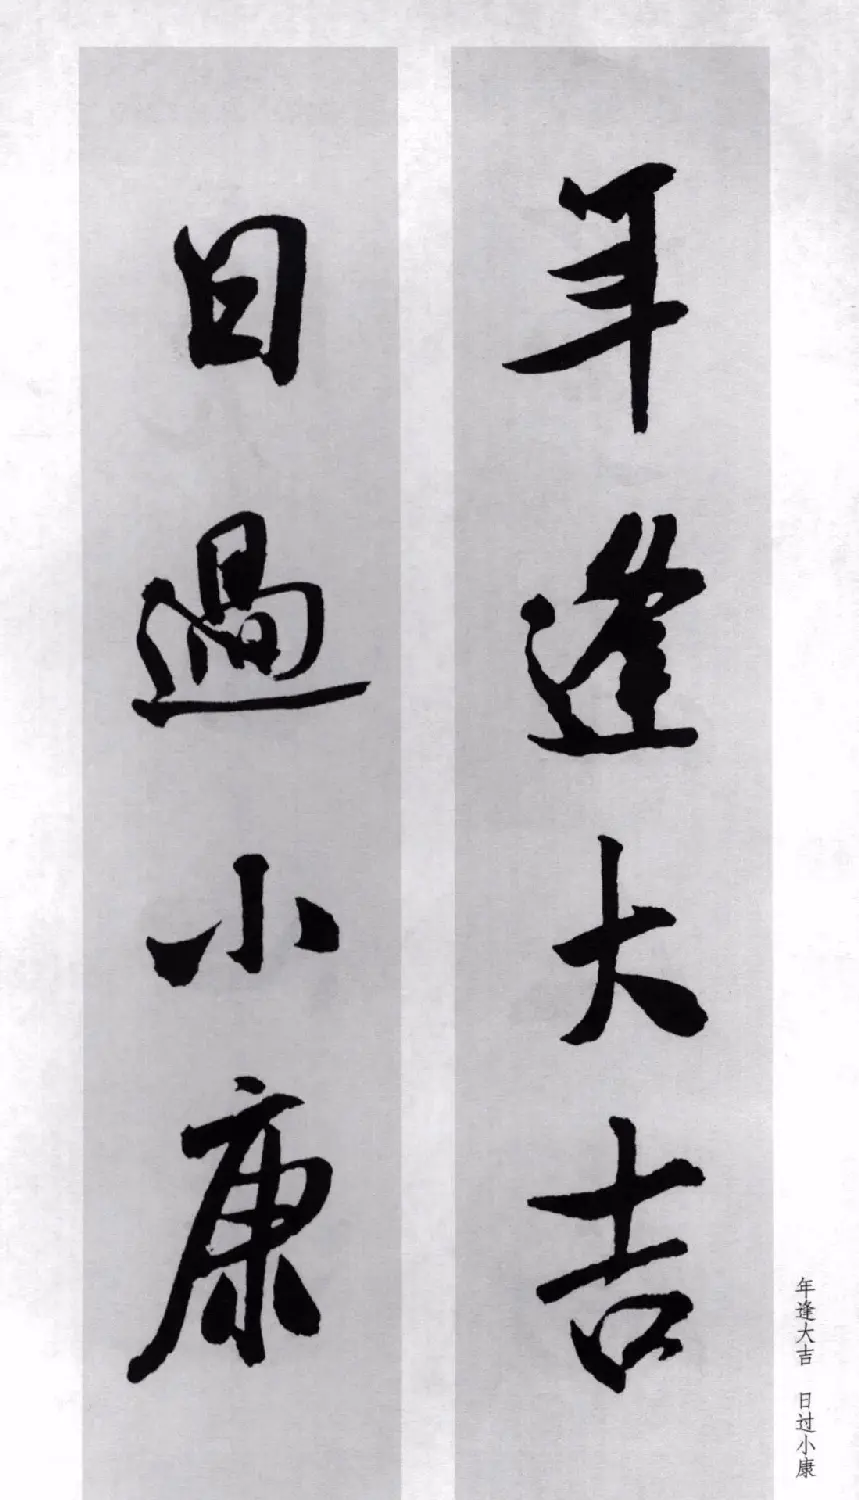 年逢大吉
日過小康
年逢大吉 日过小康